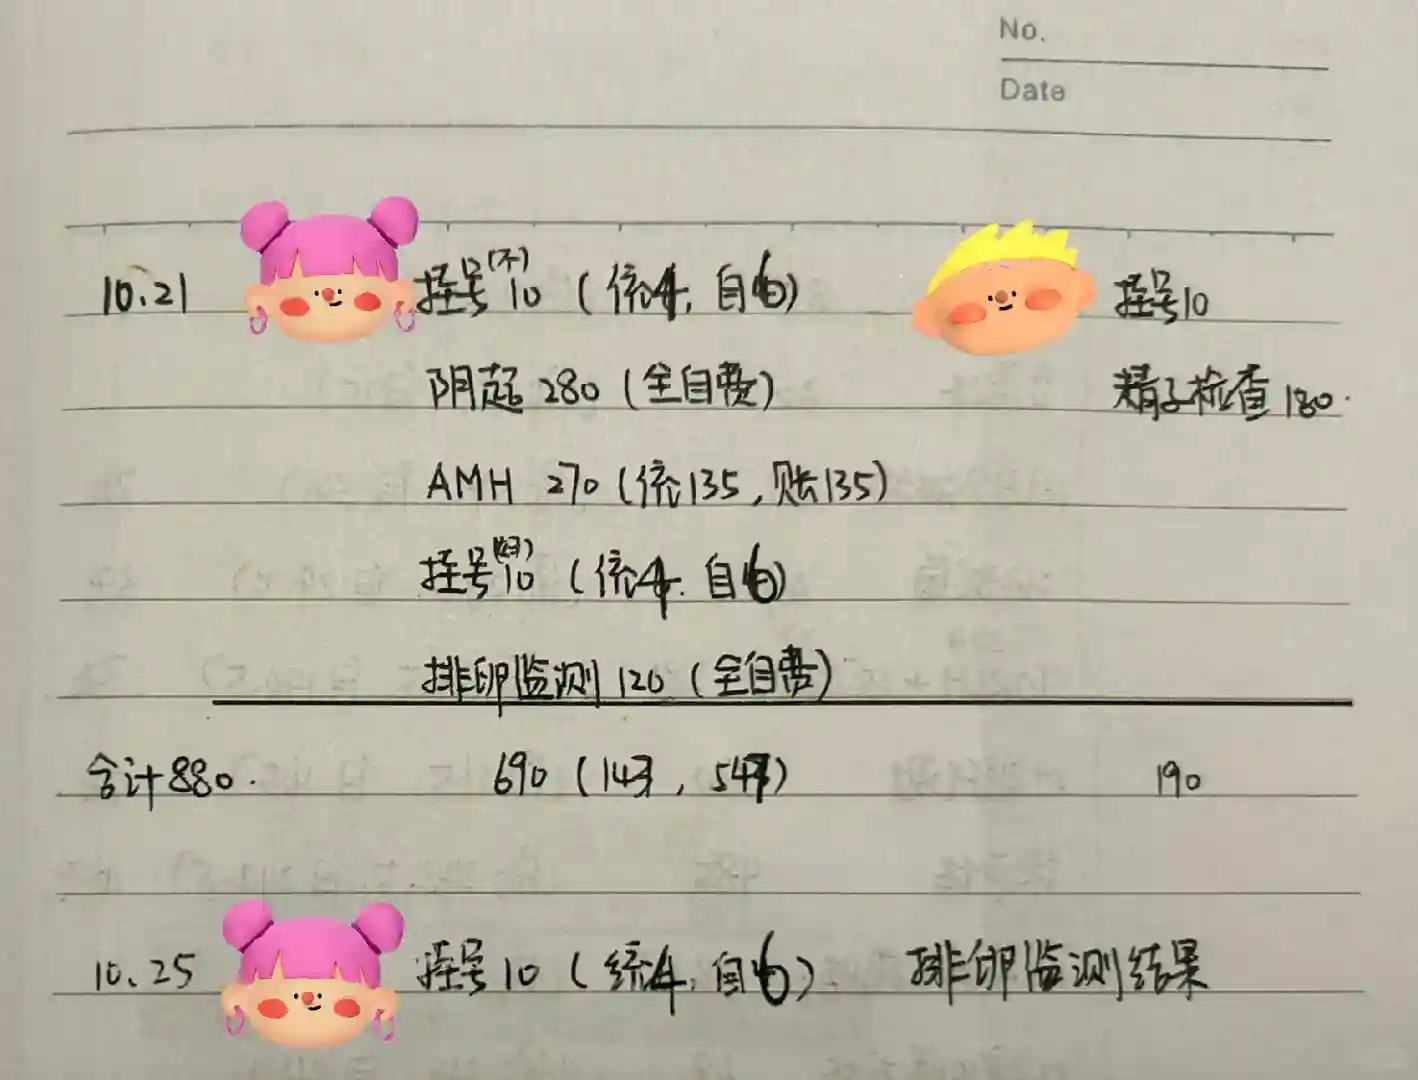 No.
Date
10.21 挂号(不)10（统4，自6） 挂号10
阴超 280（全自费） 精子检查 180.
AMH 270（统135，账135）
挂号10（统4. 自6）
排卵监测 120（全自费）
合计880. 690（143，547） 190
10.25 挂号 10（统4，自6） 排卵监测结果